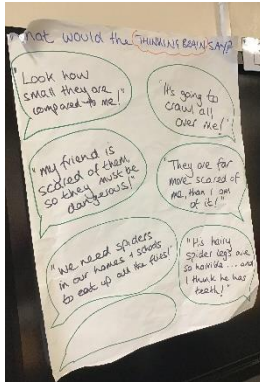 hat would the THINKING BRAIN SAY?
"Look how
small they are
compared to me!"
"It's going to
crawl all
over me!"
"my friend is
scared of them
so they must be
dangerous!"
"They are far
more scared of
me, than I am
of it!"
"We need spiders
in our homes + schools
to eat up all the flies!"
"His hairy
spider legs are
so horrible... and
I think he has
teeth!"